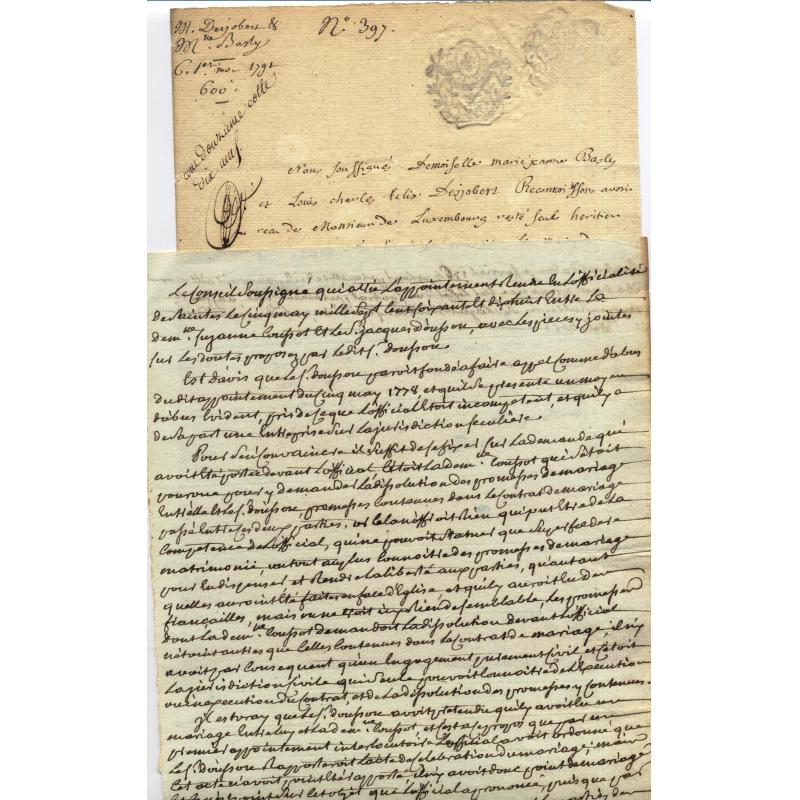 M. Desjobert &
Mlle Basly
6. 1er. mo. 1791
600#
N.o 397.
cote douzieme cotte
dix neuf
Nous soussignés Demoiselle marie jeanne Basly
et Louis charles felix Desjobert Reconnoissons avoir
reçu de Monsieur de Luxembourg resté seul heritier
Le Conseil Soussigné qui a vû L'appointement Rendu En L'officialité
de Saintes Le Cinq may mille Sept Cent Soixante et dix huit Entre La
dem.lle Suzanne Coussot Et Le S.r Jacques Doussou, avec Les pieces y jointes
Sur Les doutes proposez par Ledit S. doussou.
Est d'avis que Le S. doussou paroit fondé a faire appel Comme d'abus
dudit appointement du Cinq may 1778, et qu'il Se presente un moyen
d'abus Evident, pris de Ce que L'official Etoit incompetent, et qu'il y a
de Sa part une Entreprise Sur La jurisdiction Seculiere.
Pour S'en Convaincre il Suffit de Se fixer Sur La demande qui
avoit Eté portée devant L'official C'etoit La dem.lle Coussot qui S'étoit
pourvue pour y demander La dissolution des promesses de mariage
Entr'elle Et Le S. doussou, promesses Contenues dans Le Contrat de mariage
passé Entre Ces deux parties. or Cela n'offroit Rien qui put Etre de La
Competence de L'official, qui ne pouvoit Statuer que Super foedere
matrimonii, ou tout au plus Connoitre des promesses de mariage
pour En dispenser et Rendre La liberté aux parties, qu'autant
qu'elles auroint Eté faites en face d'Eglise et qu'il y auroit Eu des
fiançailles, mais on ne Rien de Semblable, Les promesses
dont La dem.lle Coussot demandoit La dissolution devant L'official
n'étoient autres que Celles Contenues dans Le Contrat de mariage, il n'y
avoit par Consequent qu'un Engagement purement Civil et C'etoit
La jurisdiction Civile qui Seule pouvoit Connoitre de L'Execution
ou inexecution du Contrat, et de La dissolution des promesses y Contenues.
Il est vray que Le S. doussou avoit pretendu qu'il y avoit Eu un
mariage Entre Luy et La dem.lle Coussot, et c'est a Ce propos que par un
premier appointement interlocutoire L'official avoit ordonné que
Le S. doussou Rapporteroit L'acte de Celebration du mariage: mais
Cet acte n'avoit point Eté apporté. il n'y avoit donc point de mariage
Sur Cet objet que L'official a prononcé, puisque par